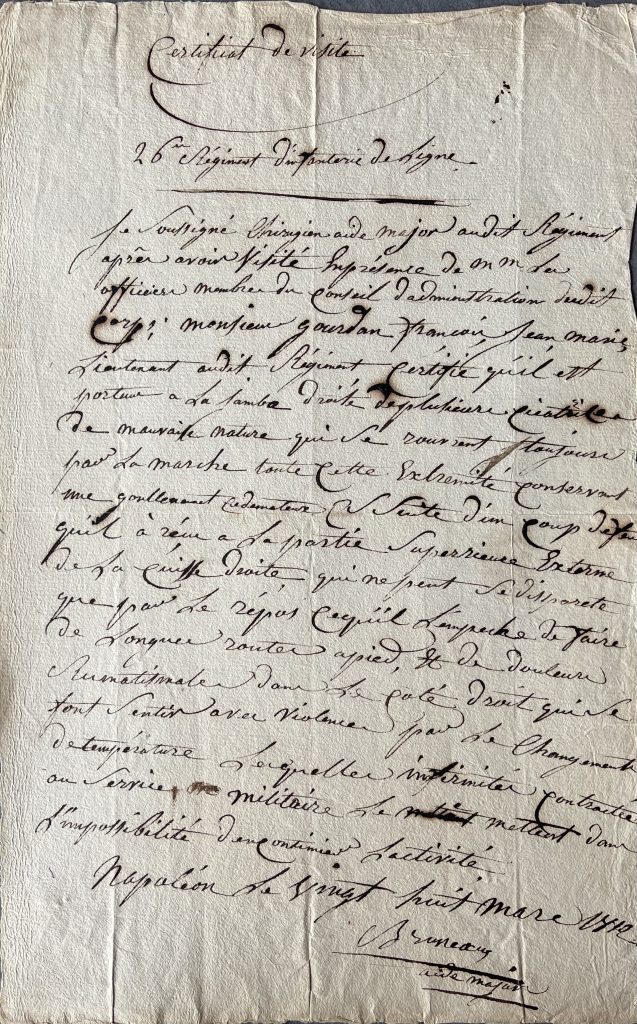 Certifiat de visite
26me Régiment d'infanterie de Ligne
Je Soussigné Chirugien aide major audit Régiment
après avoir Visité Enprésence de m m Les
officiers membres du Conseil d'administration dudit
Corps; monsieur gourdan françois, Jean marie
Lieutenant audit Régiment Certifie qu'il est
porteur a La jambe droite deplusieurs cicatrices
de mauvaise nature qui se rouvrent toujours
par La marche toute cette Extremité conservant
une gonflement œdemateux Suite d'un coup defeu
qu'il à recu a La partie Superrieure Externe
de La Cuisse droite qui ne peut Se disparete
que par Le répos Cequil L'empeche de faire
de Longues routes apied, & de douleurs
Rumatismales dans Le coté droit qui Se
font Sentir avec violences par Le Changement
detempérature Lesquelles infirmités contractés
au Service militaire Le mettent dans
L'impossibilité d'encontinuer Lactivité
Napoléon Le Vingt huit mars 1812
Bruneau
aide major